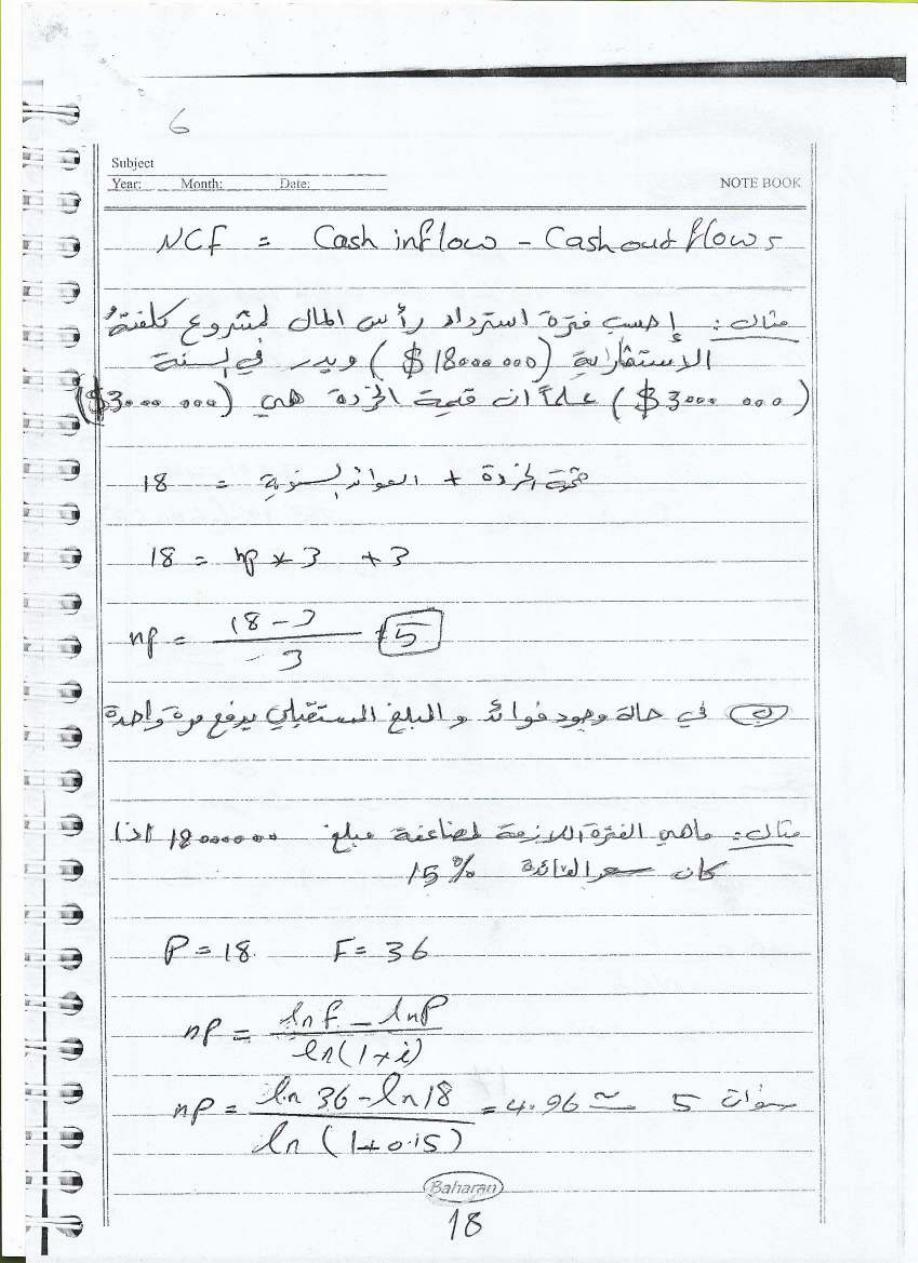 6
Subject
Year: Month: Date:
NOTE BOOK
NCF = Cash inflow - Cash outflows
مثال: إحسب فترة استرداد رأس المال لمشروع كلفتهُ
الإستثمارية (18000 000 $) ويدر في السنة
(3000 000 $) علماً ان قيمة الخردة هي (3000 000 $)
18 = العوائد السنوية + قيمة الخردة
18 = np * 3 + 3
np = 18 - 3 / 3 = 5
في حالة وجود فوائد و المبلغ المستقبلي يدفع مرة واحدة
مثال: ماهي الفترة اللازمة لمضاعفة مبلغ 18000000 اذا
كان سعر الفائدة 15%
P = 18 F = 36
np = ln F - ln P / ln(1+i)
np = ln 36 - ln 18 / ln (1+0.15) = 4.96 ≃ 5 سنوات
Baharan
18